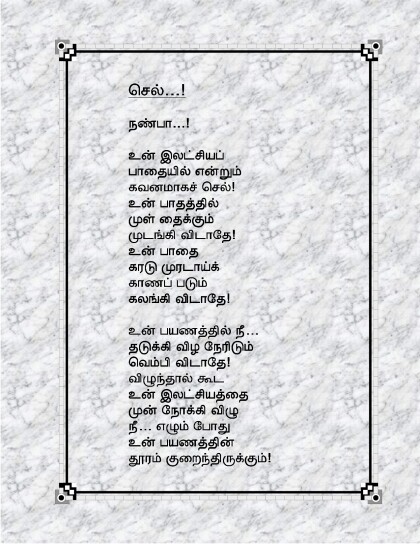 செல்...!
நண்பா...!
உன் இலட்சியப்
பாதையில் என்றும்
கவனமாகச் செல்!
உன் பாதத்தில்
முள் தைக்கும்
முடங்கி விடாதே!
உன் பாதை
கரடு முரடாய்க்
காணப் படும்
கலங்கி விடாதே!
உன் பயணத்தில் நீ...
தடுக்கி விழ நேரிடும்
வெம்பி விடாதே!
விழுந்தால் கூட
உன் இலட்சியத்தை
முன் நோக்கி விழு
நீ... எழும் போது
உன் பயணத்தின்
தூரம் குறைந்திருக்கும்!